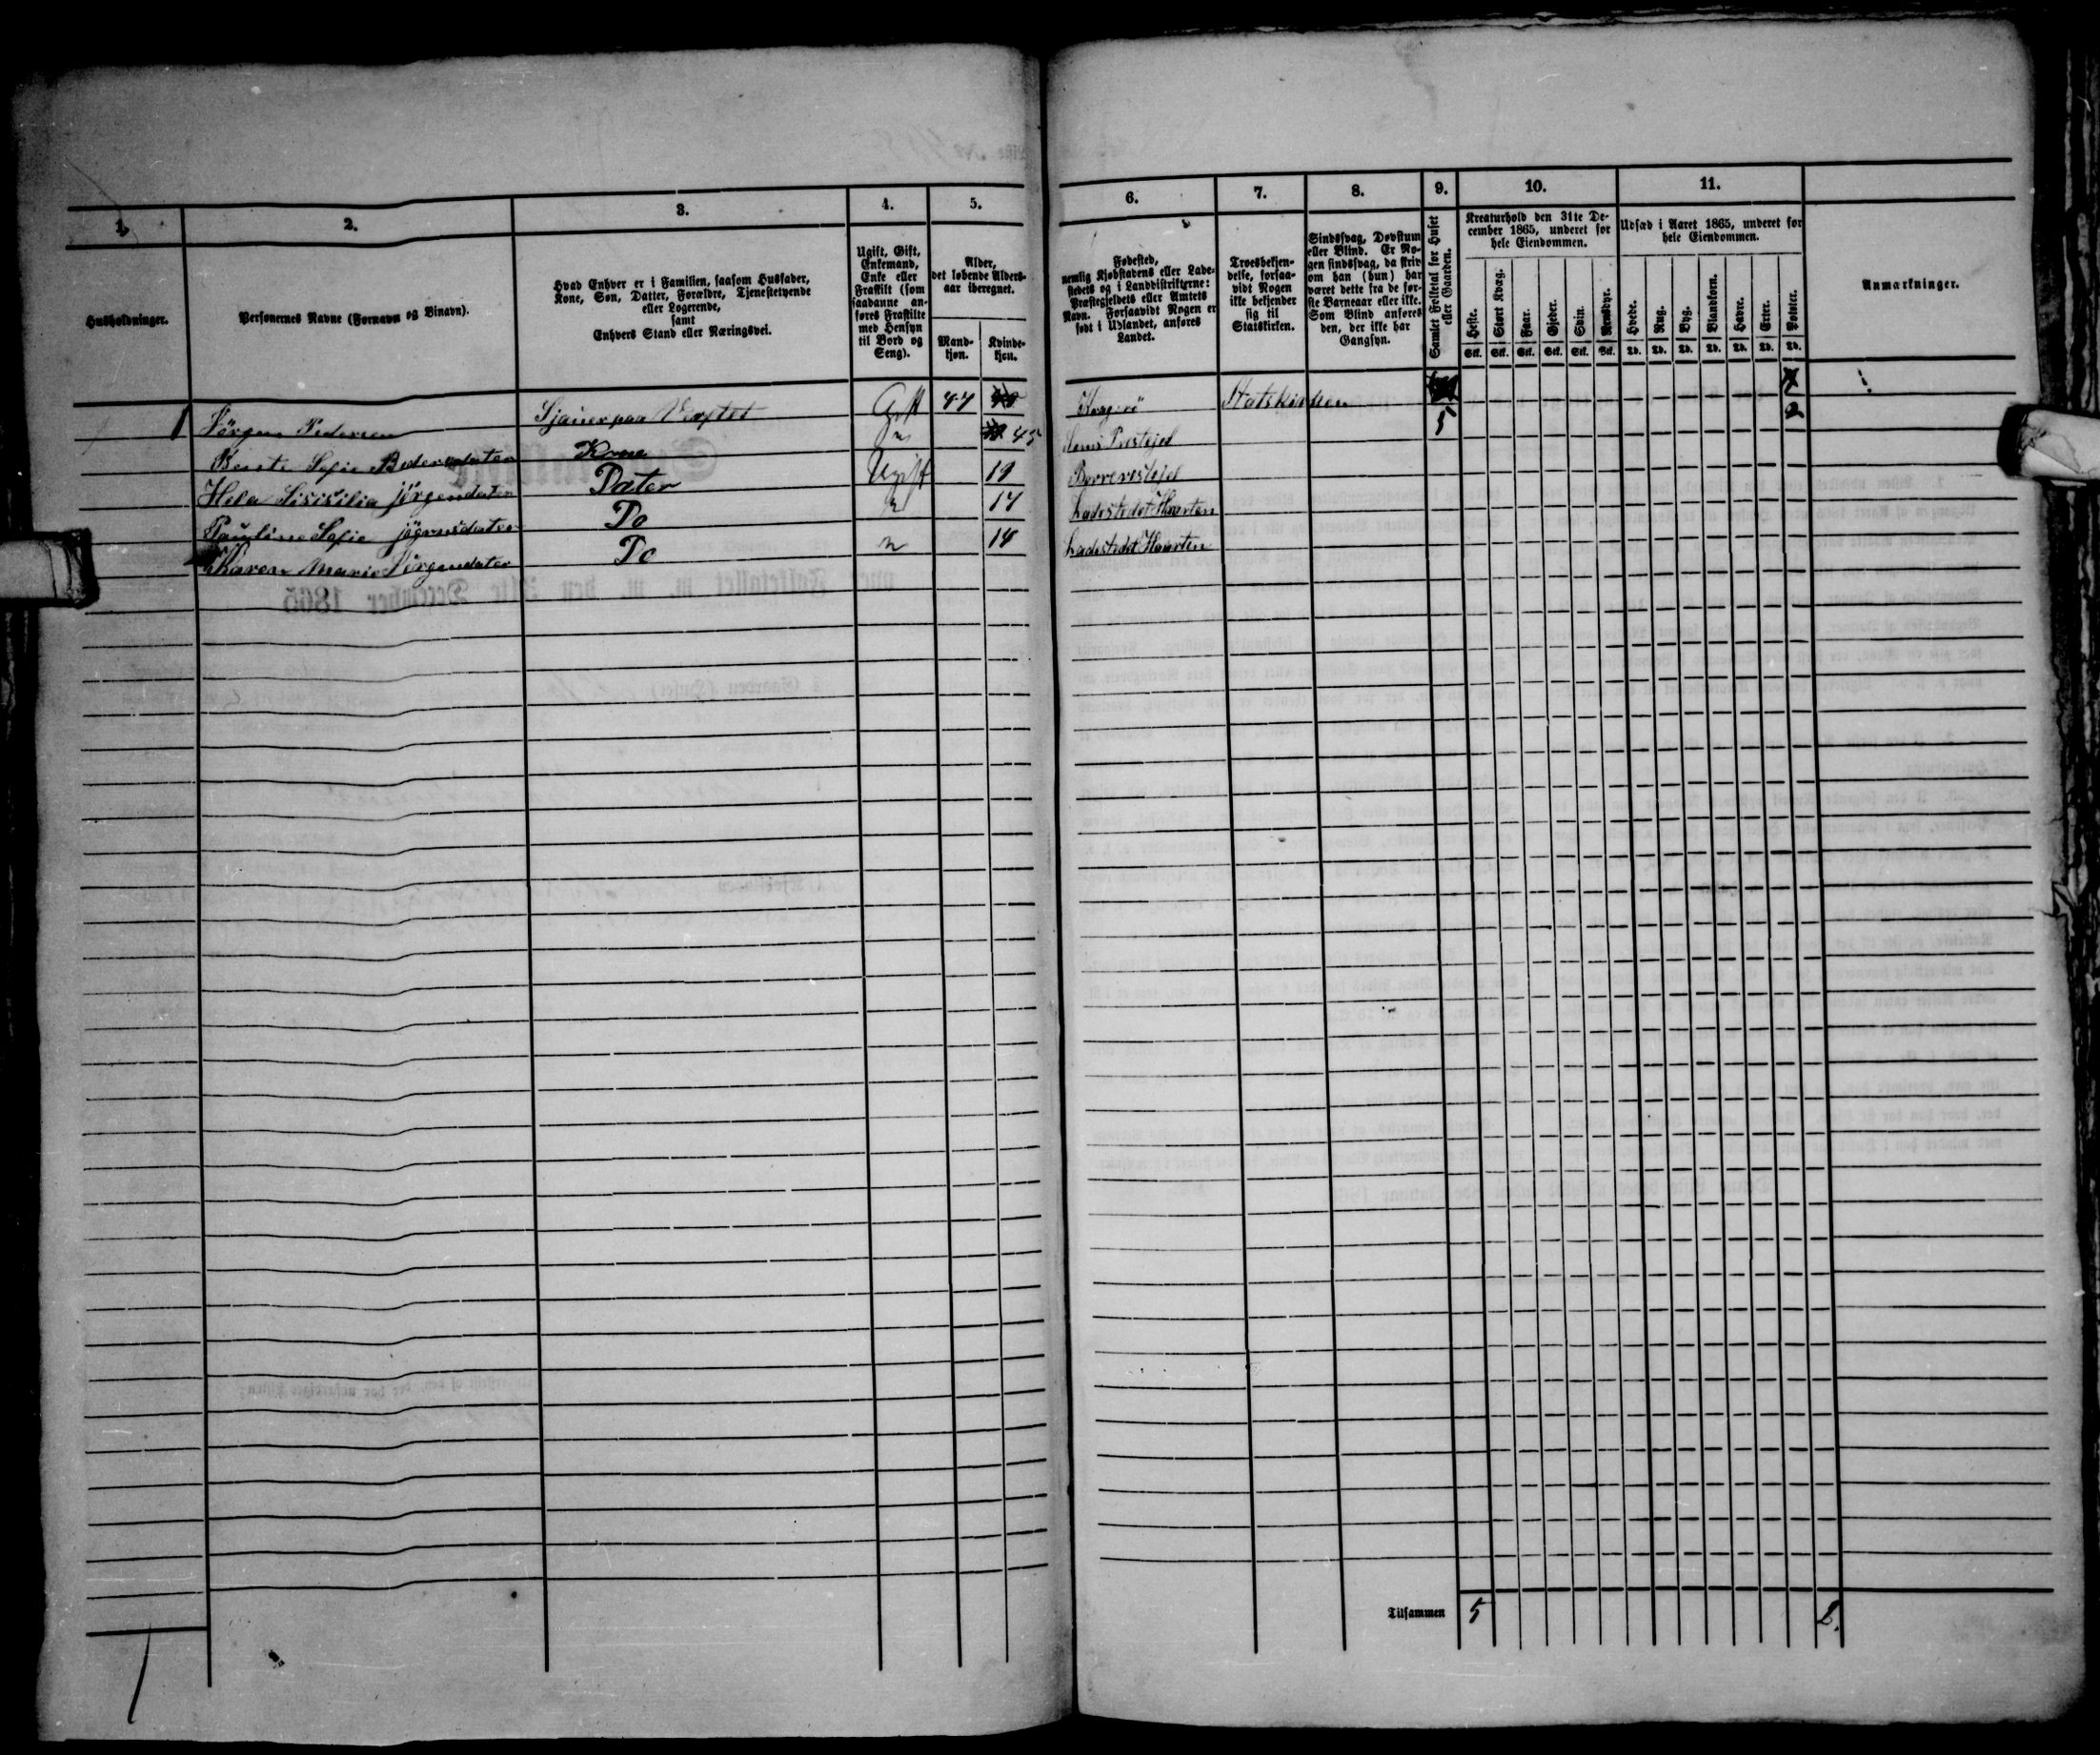 1. 2. 3. 4. 5. 6. 7. 8. 9. 10. 11.
Husholdninger.
Personernes Navne (Fornavn og Binavn).
Hvad Enhver er i Familien, saasom Husfader,
Kone, Søn, Datter, Forældre, Tjenestetyende
eller Logerende,
samt
Enhvers Stand eller Næringsvei.
Ugift, Gift,
Enkemand,
Enke eller
Fraskilt (som
saadanne an-
føres Fraskilte
med Hensyn
til Bord og
Seng).
Alder,
det løbende Alders-
aar iberegnet.
Mand-
kjøn.
Kvinde-
kjøn.
Fødested,
nemlig Kjøbstadens eller Lade-
stedets og i Landdistrikterne:
Præstegjeldets eller Amtets
Navn. Forsaavidt Nogen er
født i Udlandet, anføres
Landet.
Troesbekjen-
delse, forsaa-
vidt Nogen
ikke bekjender
sig til
Statskirken.
Sindssvag, Døvstum
eller Blind. Er No-
gen sindssvag, da skriv
om han (hun) har
været dette fra de før-
ste Barneaar eller ikke.
Som Blind anføres
den, der ikke har
Gangsyn.
Samlet Folketal for Huset
eller Gaarden.
Kreaturhold den 31te De-
cember 1865, underet for
hele Eiendommen.
Heste. Stort Kvæg. Faar. Gjeder. Svin. Rensdyr.
Stk. Stk. Stk. Stk. Stk. Stk.
Udsæd i Aaret 1865, underet for
hele Eiendommen.
Hvede. Rug. Byg. Blandkorn. Havre. Erter. Poteter.
Td. Td. Td. Td. Td. Td. Td.
Anmærkninger.
1 Jörgen Pedersen Sjauer paa Verftet Gift 47 Kragerö Statskirken 5 2
Bente Sofie Pedersdater Kone 45
Hela Sisisilia Jörgendater Dater Ugift 19
Pauline Sofie Jörgensdater Do 17 Ladestedet Hvarten
Karen Marie Jörgendater Do 14 Ladestedet Hvarten
Tilsammen 5 2.
1